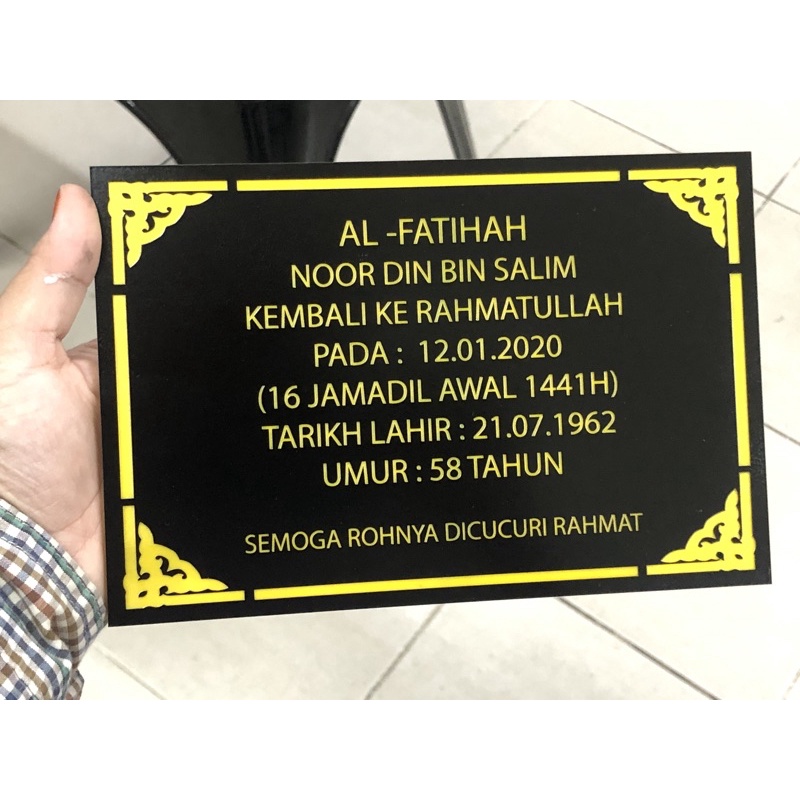 AL -FATIHAH
NOOR DIN BIN SALIM
KEMBALI KE RAHMATULLAH
PADA : 12.01.2020
(16 JAMADIL AWAL 1441H)
TARIKH LAHIR : 21.07.1962
UMUR : 58 TAHUN
SEMOGA ROHNYA DICUCURI RAHMAT